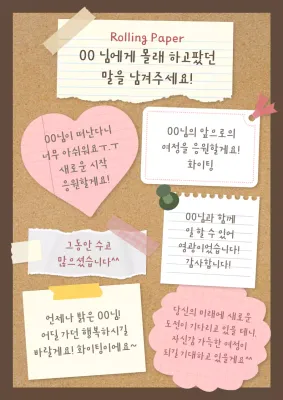 Rolling Paper
OO 님에게 몰래 하고팠던
말을 남겨주세요!
OO님이 떠난다니
너무 아쉬워요ㅜ.ㅜ
새로운 시작
응원할게요!
OO님의 앞으로의
여정을 응원할게요!
화이팅
OO님과 함께
일 할 수 있어
영광이었습니다!
감사합니다!
그동안 수고
많으셨습니다^^
언제나 밝은 OO님!
어딜 가던 행복하시길
바랄게요! 화이팅이에요~
당신의 미래에 새로운
도전이 기다리고 있을 테니,
자신감 가득한 여정이
되길 기대하고 있을게요^^